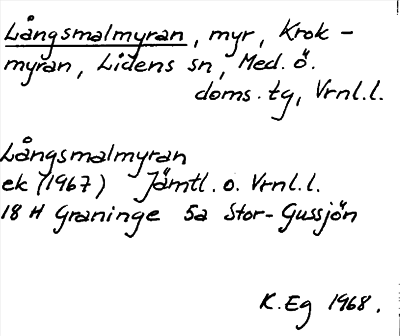 Långsmalmyran, myr, Krok-
myran, Lidens sn, Med. ö.
doms. tg, Vrnl.l.
Långsmalmyran
ek (1967) Jämtl. o. Vrnl.l.
18 H Graninge 5a Stor-Gussjön
K. Eg 1968.